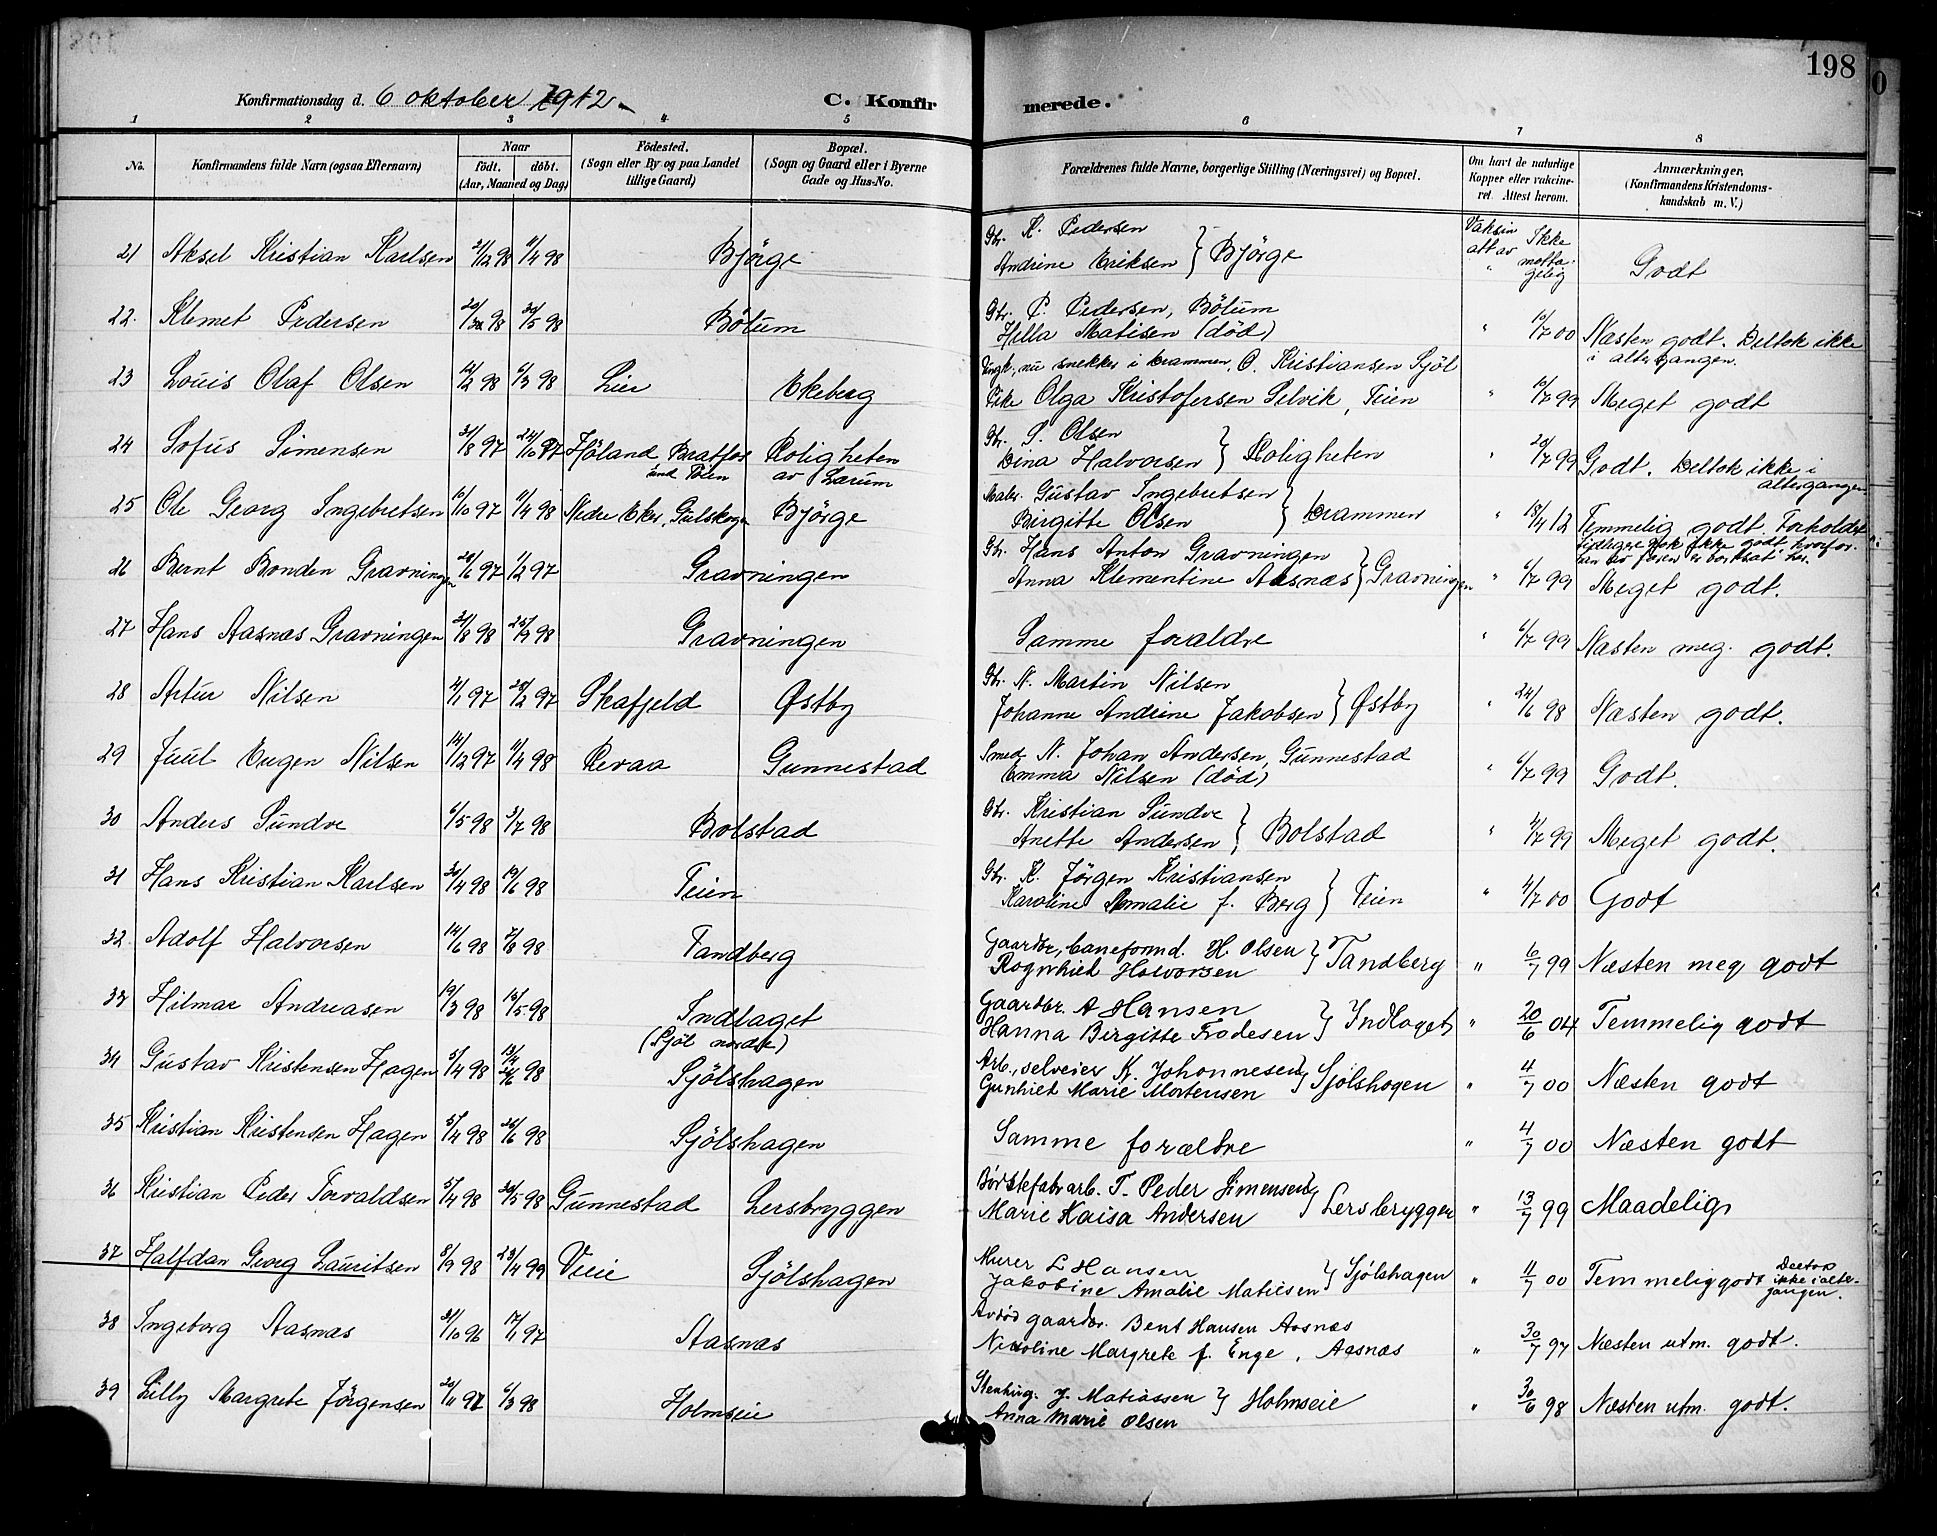 198
Konfirmationsdag d. 6 oktober 1912.
C. Konfirmerede.
1 2 3 4 5 6 7 8
No.
Konfirmandens fulde Navn (ogsaa Efternavn)
Naar
født. døbt.
(Aar, Maaned og Dag)
Fødested.
(Sogn eller By og paa Landet tillige Gaard)
Bopæl.
(Sogn og Gaard eller i Byerne Gade og Hus-No.
Forældrenes fulde Navne, borgerlige Stilling (Næringsvei) og Bopæl.
Om havt de naturlige Kopper eller vakcineret. Attest herom.
Anmærkninger.
(Konfirmandens Kristendomskundskab m. V.)
21 Aksel Kristian Karlsen 2/12 98 11/4 98 Bjørge
Gbr. K. Pedersen
Andrine Eriksen } Bjørge
Vaksin att av " Ikke mottagelig Godt
22. Klemet Pedersen 98 30/5 98 Bötum
Gbr. P. Pedersen, Bötum
Hilla Matisen (död) " 10/7 00 Næsten godt. Deltok ikke i altergangen.
23 Louis Olaf Olsen 98 6/3 98 Lier Ekeberg
Ungk., nu snekker i Drammen, O. Kristiansen Sjöl
Pike Olga Kristofersen Selvik, Teien " 10/7 99 Meget godt
24 Sofus Simensen 31/8 97 24/10 97 Höland Bratfos Roligheten av Lærum
Gbr. S. Olsen
Dina Halvorsen } Roligheten " 20/7 99 Godt. Deltok ikke i altergangen
25 Ole Georg Ingebretsen 10/10 97 11/4 98 Nedre Eker, Gulskogen Bjørge
Maler Gustav Ingebretsen
Birgitte Olsen } Drammen " 18/4 12 Temmelig godt.
26 Bernt Bonden Gravningen 97 97 Gravningen
Gbr. Hans Anton Gravningen
Anna Klementine Aasnæs } Gravningen " 6/7 99 Meget godt.
27 Hans Aasnæs Gravningen 31/8 98 25/9 98 Gravningen
Samme forældre " 6/7 99 Næsten meg. godt.
28 Artur Nilsen 4/1 97 28/2 97 Skafjeld Østby
Gbr. N. Martin Nilsen
Johanne Andrine Jakobsen } Østby " 24/6 98 Næsten godt.
29 Juul Eugen Nilsen 14/12 97 11/4 98 Revaa Gunnestad
Smed N. Johan Andersen, Gunnestad
Emma Nilsen (död) " 6/7 99 Godt.
30 Anders Sundre 6/5 98 3/7 98 Bolstad
Gbr. Kristian Sundre
Anette Andersen } Bolstad " 4/7 99 Meget godt.
31 Hans Kristian Karlsen 30/4 98 19/6 98 Teien
Gbr. K. Jörgen Kristiansen
Karoline Amalie f. Berg } Teien " 4/7 00 Godt
32. Adolf Halvorsen 14/6 98 7/8 98 Tandberg
Gaardbr., baneformd. H. Olsen
Rognhild Halvorsen } Tandberg " 6/7 99 Næsten meg godt
33 Hilmar Andreasen 19/3 98 15/5 98 Indlaget (Sjöl nordre)
Gaardbr. A Hansen
Hanna Birgitte Frodesen } Indlaget " 20/6 04 Temmelig godt
34 Gustav Kristensen Hagen 5/4 98 13/4 26/6 98 Sjölshagen
Arb., selveier K. Johannesen
Gunhild Marie Mortensen } Sjölshagen " 4/7 00 Næsten godt
35 Kristian Kristensen Hagen 5/4 98 26/6 98 Sjölshagen
Samme forældre " 4/7 00 Næsten godt
36 Kristian Peder Torvaldsen 5/4 98 30/5 98 Gunnestad Lersbryggen
Børstefabrarb. T. Peder Simensen
Marie Kaisa Andersen } Lersbryggen " 13/7 99 Maadelig
37 Halfdan Georg Lauritsen 8/9 98 23/4 99 Veie Sjölshagen
Murer L Hansen
Jakobine Amalie Matiesen } Sjølshagen " 11/7 00 Temmelig godt Deltok ikke i altergangen.
38 Ingeborg Aasnæs 31/10 96 17/1 97 Aasnæs
Avdöd gaardbr. Bent Hansen Aasnæs
Nikoline Margrete f. Enge, Aasnæs " 30/7 97 Næsten utm. godt.
39 Lilly Margrete Jörgensen 20/11 97 6/3 98 Holmseie
Stenhug. J. Matiassen
Anna Marie Olsen } Holmseie " 30/6 98 Næsten utm. godt.